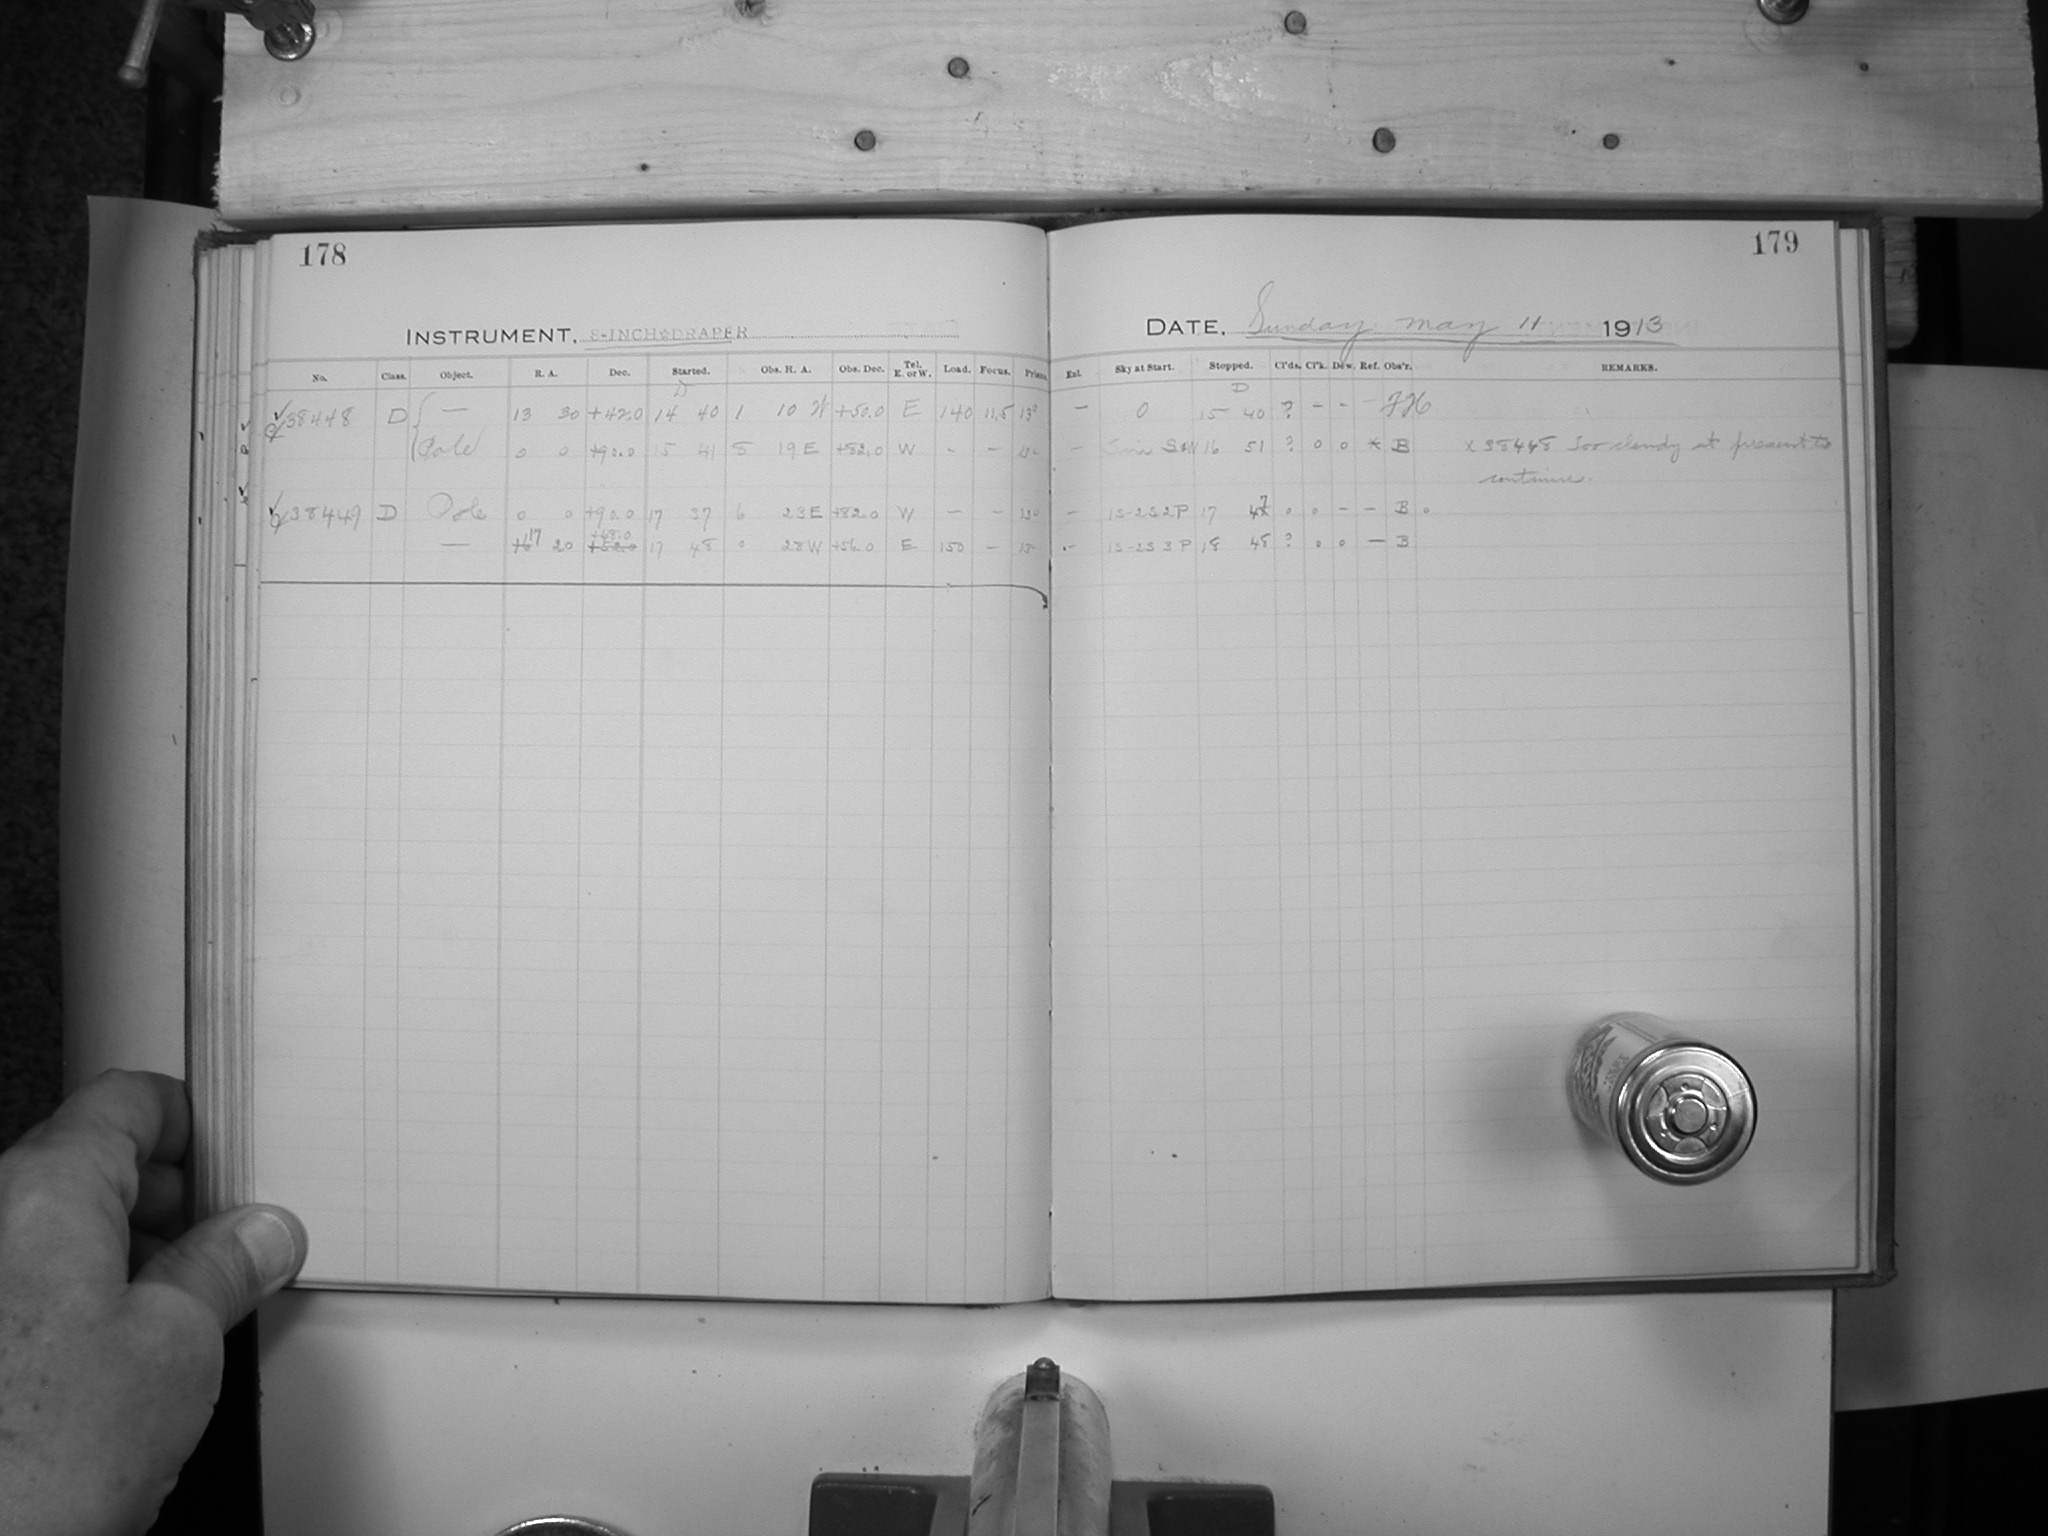 178
179
INSTRUMENT. 8-INCH DRAPER
DATE, Sunday, May 11 1913
No. Class. Object. R. A. Dec. Started. Obs. H. A. Obs. Dec. Tel. E. or W. Load. Focus. Prism. Enl. Sky at Start. Stopped. Cl'ds. Cl'k. Dew. Ref. Obs'r. REMARKS.
D D
38448 D — 13 30 +42.0 14 40 1 10 W +50.0 E 140 11.5 13° — 0 15 40 ? – – –
Pole 0 0 +90.0 15 41 8 19 E +82.0 W – – — 16 51 ? 0 0 * B x 38448 Too cloudy at present to
continue.
38449 D Pole 0 0 +90.0 17 37 6 23 E +82.0 W — — — 1S-2S2P 17 47 0 0 – – B
+48.0
17 20 +52.0 17 48 0 28 W +56.0 E 150 – — 1S-2S3P 18 48 ? 0 0 — B